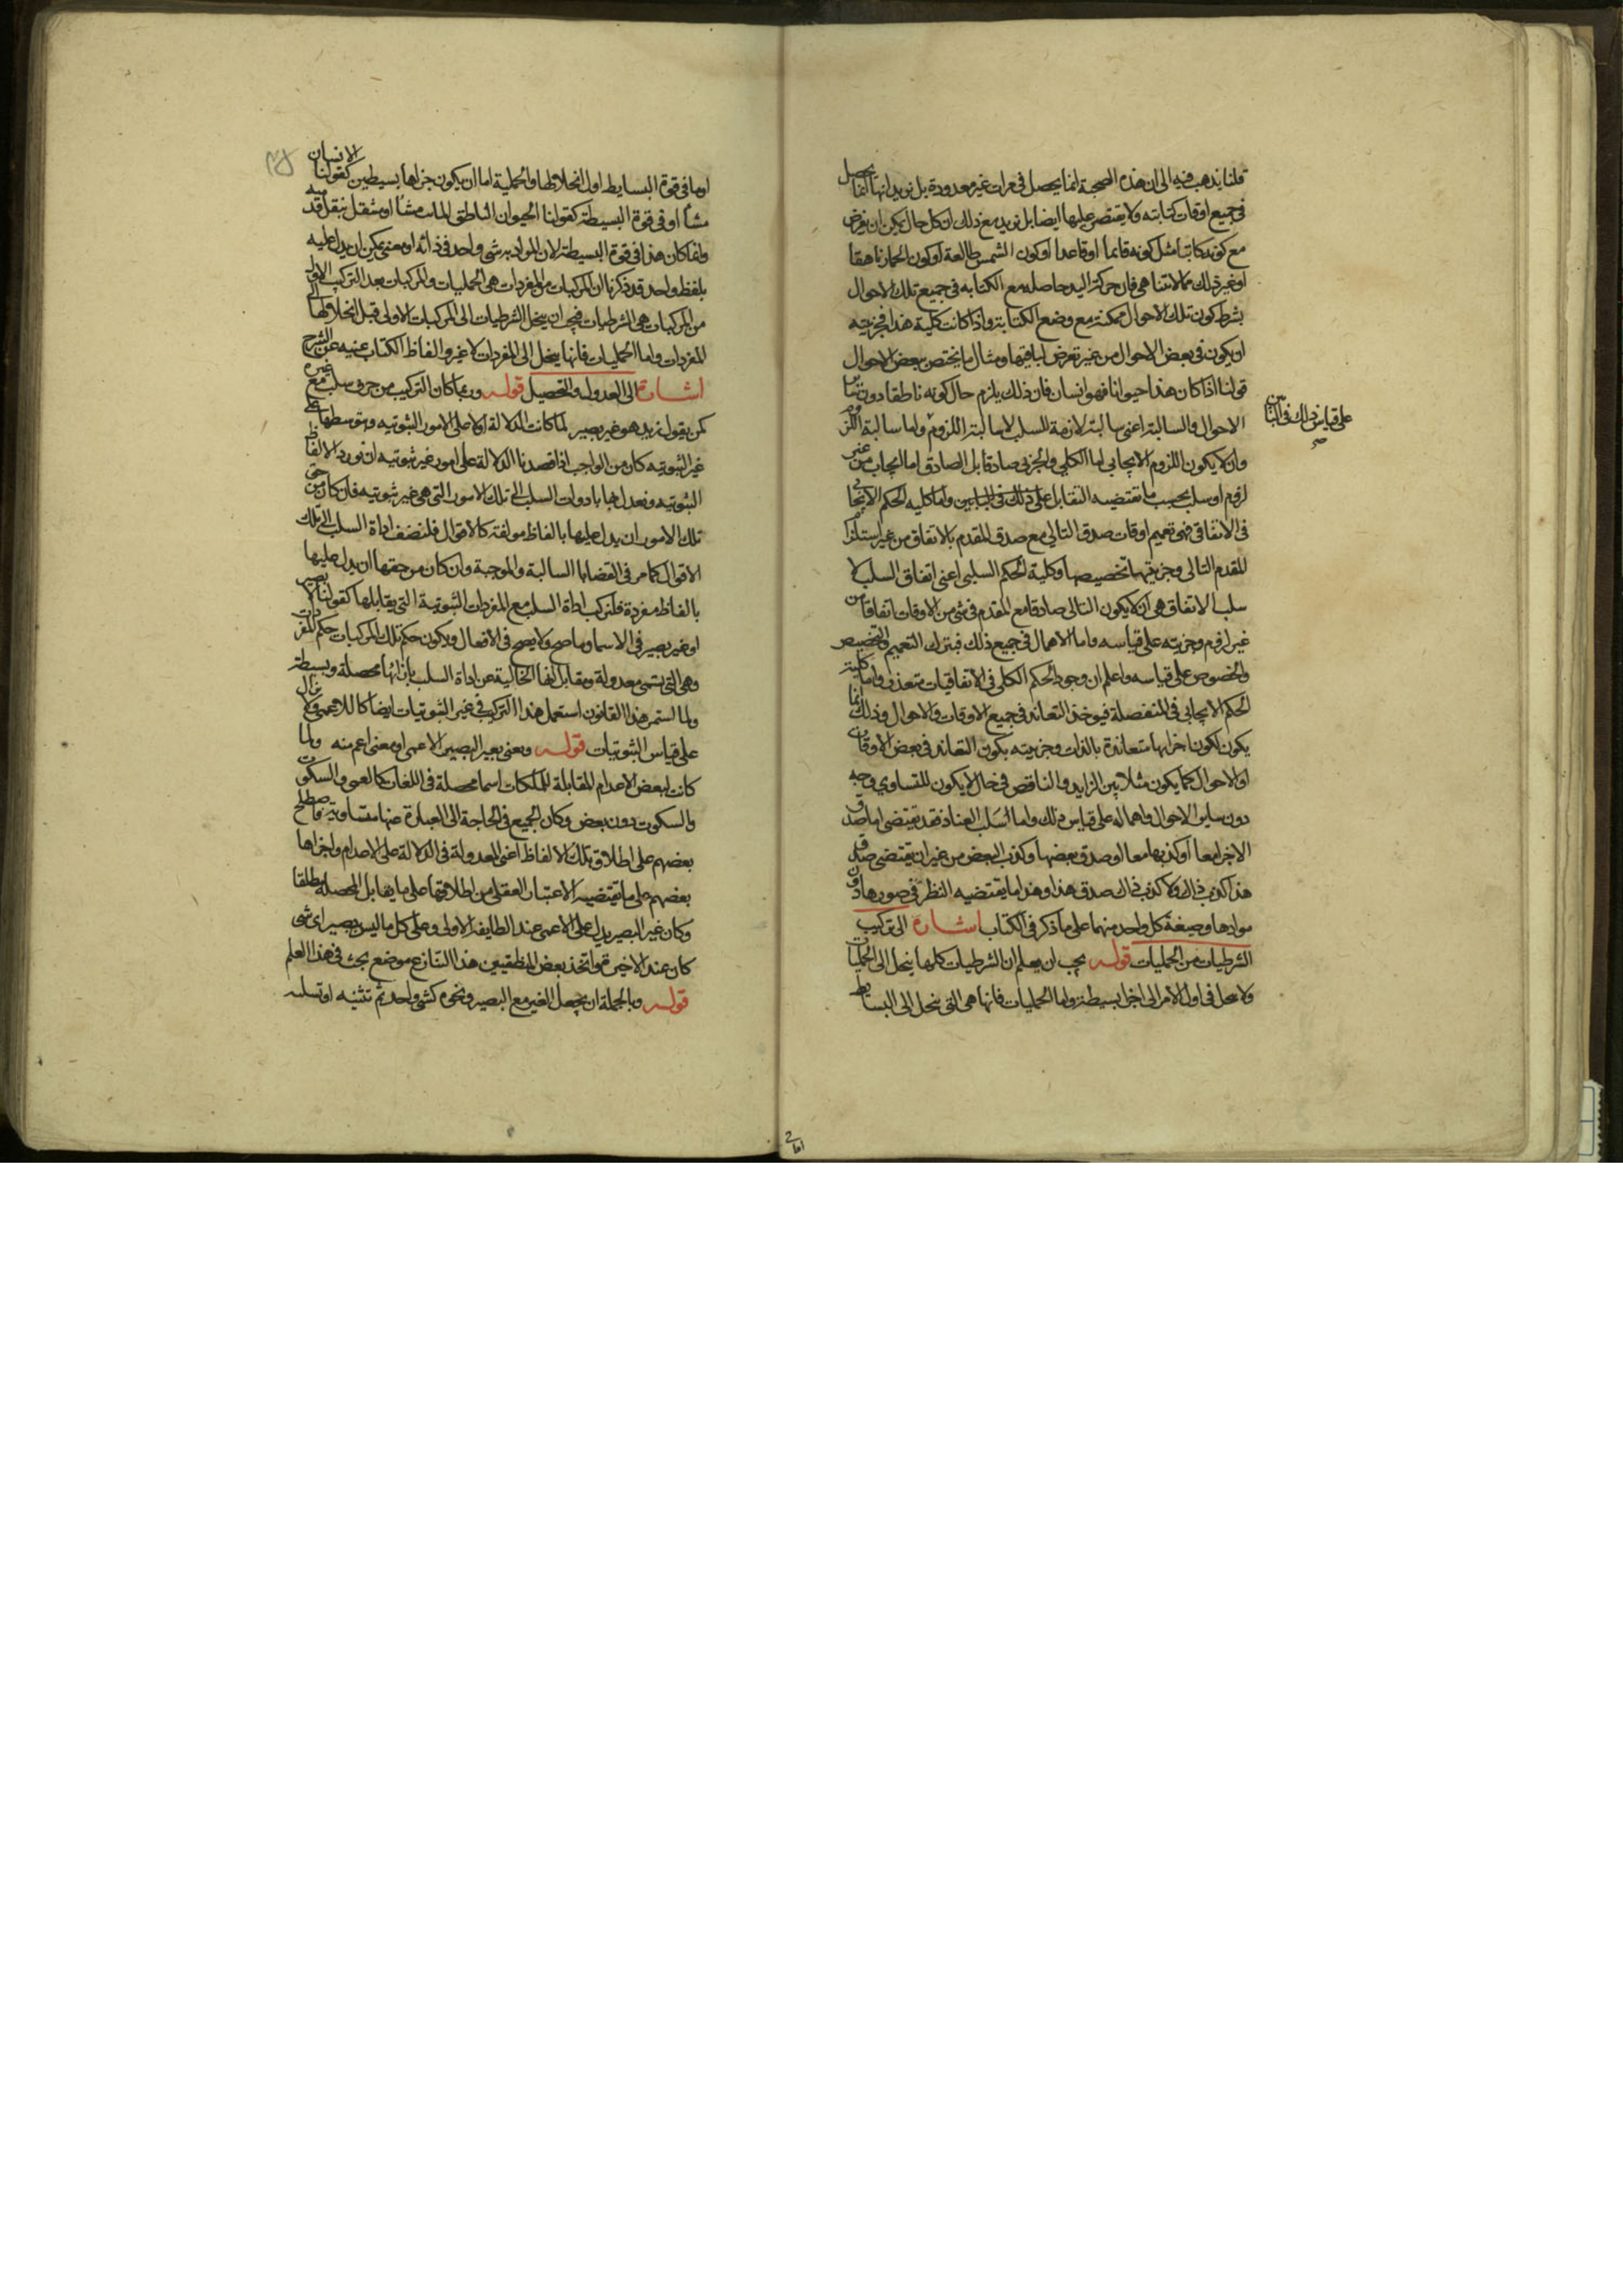 فلنا يذهب فيه الى ان هذه الصحبة انما يحصل فى مرات غير معدودة بل نريد انها انما يحصل
فى جميع اوقات كتابته ولا يقتصر عليها ايضا بل نريد مع ذلك ان كل حال يمكن ان يفرض
مع كونه كاتبا مثل كونه قائما او قاعدا او كون الشمس طالعة او كون الحمار ناهقا
او غير ذلك مما لا يتناهى فان حركة اليد حاصله مع الكتابه فى جميع تلك الاحوال
بشرط كون تلك الاحوال ممكنة مع وضع الكتابة واذا كانت كلية هذا فجزئيته
ان يكون فى بعض الاحوال من غير تعرض لباقيها ومثال ما يختص ببعض الاحوال
قولنا اذا كان هذا حيوانا فهو انسان فان ذلك يلزم حال كونه ناطقا دون سائر
الاحوال والسالبة اعنى سالبة لازمة السلب لا سالبة اللزوم واما سالبة اللزوم
وان لا يكون اللزوم الايجابى اما الكلى والجزئى صادقا بل الصادق اما ايجاب من غير
لزوم او سلب بحسب ما تقتضيه التقابل على ذلك فى البابين واما كليه الحكم الايجابى
على قياس ذلك فى البابين
صح
فى الاتفاقى فهى تعميم اوقات صدق التالى مع صدق المقدم بالاتفاق من غير استلزام
المقدم التالى وجزئيتها تخصيصها وكلية الحكم السلبى اعنى اتفاق السلب لا
سلب الاتفاق هى ان لا يكون التالى صادقا مع المقدم فى شى من الاوقات اتفاقا من
غير لزوم وجزيته على قياسه واما الاهمال فى جميع ذلك فبترك التعميم والتخصيص
والخصوص على قياسه واعلم ان وجود الحكم الكلى فى الاتفاقيات متعذر واما كلية
الحكم الايجابى فى المنفصلة فبوخذ التعاند فى جميع الاوقات والاحوال وذلك انما
يكون لكون اجزائها متعاندة بالذات وجزيته بكون التعاند فى بعض الاوقات
او الاحوال كما يكون مثلا بين الزايد والناقص فى حال لا يكون للتساوى وجه
دون ساير الاحوال واهماله على قياس ذلك واما السلب العناد فقد يقتضى اما صدق
الاجزا معا او كذبها معا او صدق بعضها وكذب البعض من غير ان يقتضى صدق
هذا كذب ذاك ولا كذب ذاك صدق هذا وهذا ما يقتضيه النظر فى صورها دون
موادها وصيغة كل واحد منهما على ما ذكر فى الكتاب اشاره الى تركيب
الشرطيات من الحمليات قوله يجب ان يعلم ان الشرطيات كلها ينحل الى الحمليات
ولا ينحل فى اول الامر الى اجزا بسيطة واما الحمليات فانها هى التى ينحل الى البسايط
او ما فى قوة البسايط اول انحلالها والحملية اما ان يكون جزاها بسيطين كقولنا الانسان
مشا او فى قوة البسيطة كقولنا الحيوان الناطق المائت مشا او منتقل بنقل قدميه
وانما كان هذا فى قوة البسيطة لان المراد به شى واحد فى ذاته او معنى يمكن ان يدل عليه
بلفظ واحد قد ذكرنا ان المركبات من المفردات هى الحمليات والمركبات بعد التركيب الاول
من المركبات هى الشرطيات فيجب ان ينحل الشرطيات الى المركبات الاولى قبل انحلالها الى
المفردات واما الحمليات فانها ينحل الى المفردات لا غير والفاظ الكتاب غنيه عن الشرح
اشارة الى العدول والتحصيل قوله وربما كان التركيب من حرف سلب مع غيره
كمن يقول زيد هو غير بصير لما كانت الدلالة اولا على الامور الثبوتيه وبتوسطها على
غير الثبوتيه كان من الواجب اذا قصدنا الدلالة على امور غير ثبوتيه ان نورد الالفاظ
الثبوتيه ونعدل بها بادوات السلب الى تلك الامور التى هى غير ثبوتيه فان كان من حق
تلك الامور ان يدل عليها بالفاظ مولفة كالاقوال فلنضف اداة السلب الى تلك
الاقوال كما مر فى القضايا السالبة والموجبة وان كان من حقها ان يدل عليها
بالفاظ مفردة فلنركب اداة السلب مع المفردات الثبوتية التى يقابلها كقولنا لا بصير
او غير بصير فى الاسما وما صح ولا يصح فى الافعال ويكون حكم تلك المركبات حكم المفردات
وهى التى تسمى معدولة ومقابل كفا الخالية عن اداة السلب بازائها محصلة وبسيطة
ولما استمر هذا القانون استعمل هذا التركيب فى غير الثبوتيات ايضا كاللاعمى ولا يزال
على قياس الثبوتيات قوله ونعنى بغير البصير الاعمى او معنى اعم منه ولما
كانت لبعض الاعدام المقابلة للملكات اسما محصلة فى اللغات كالعمى والسكوت
والسكون دون بعض وكان الجميع فى الحاجة الى العبارة عنها متساوية فاصطلح
بعضهم على اطلاق تلك الالفاظ اعنى المعدولة فى الدلالة على الاعدام واجراها
بعضهم على ما يقتضيه الاعتبار العقلى من اطلاقها على ما يقابل المحصلة مطلقا
وكان غير البصير يدل على الاعمى عند الطايفة الاولى وعلى كل ما ليس ببصير اى شى
كان عند الاخيرة واتخذ بعض المنطقيين هذا التنازع موضع بحث فى هذا العلم
قوله وبالجملة ان يجعل الغير مع البصير ونحوه كشى واحد ثم تثبته او تسلبه